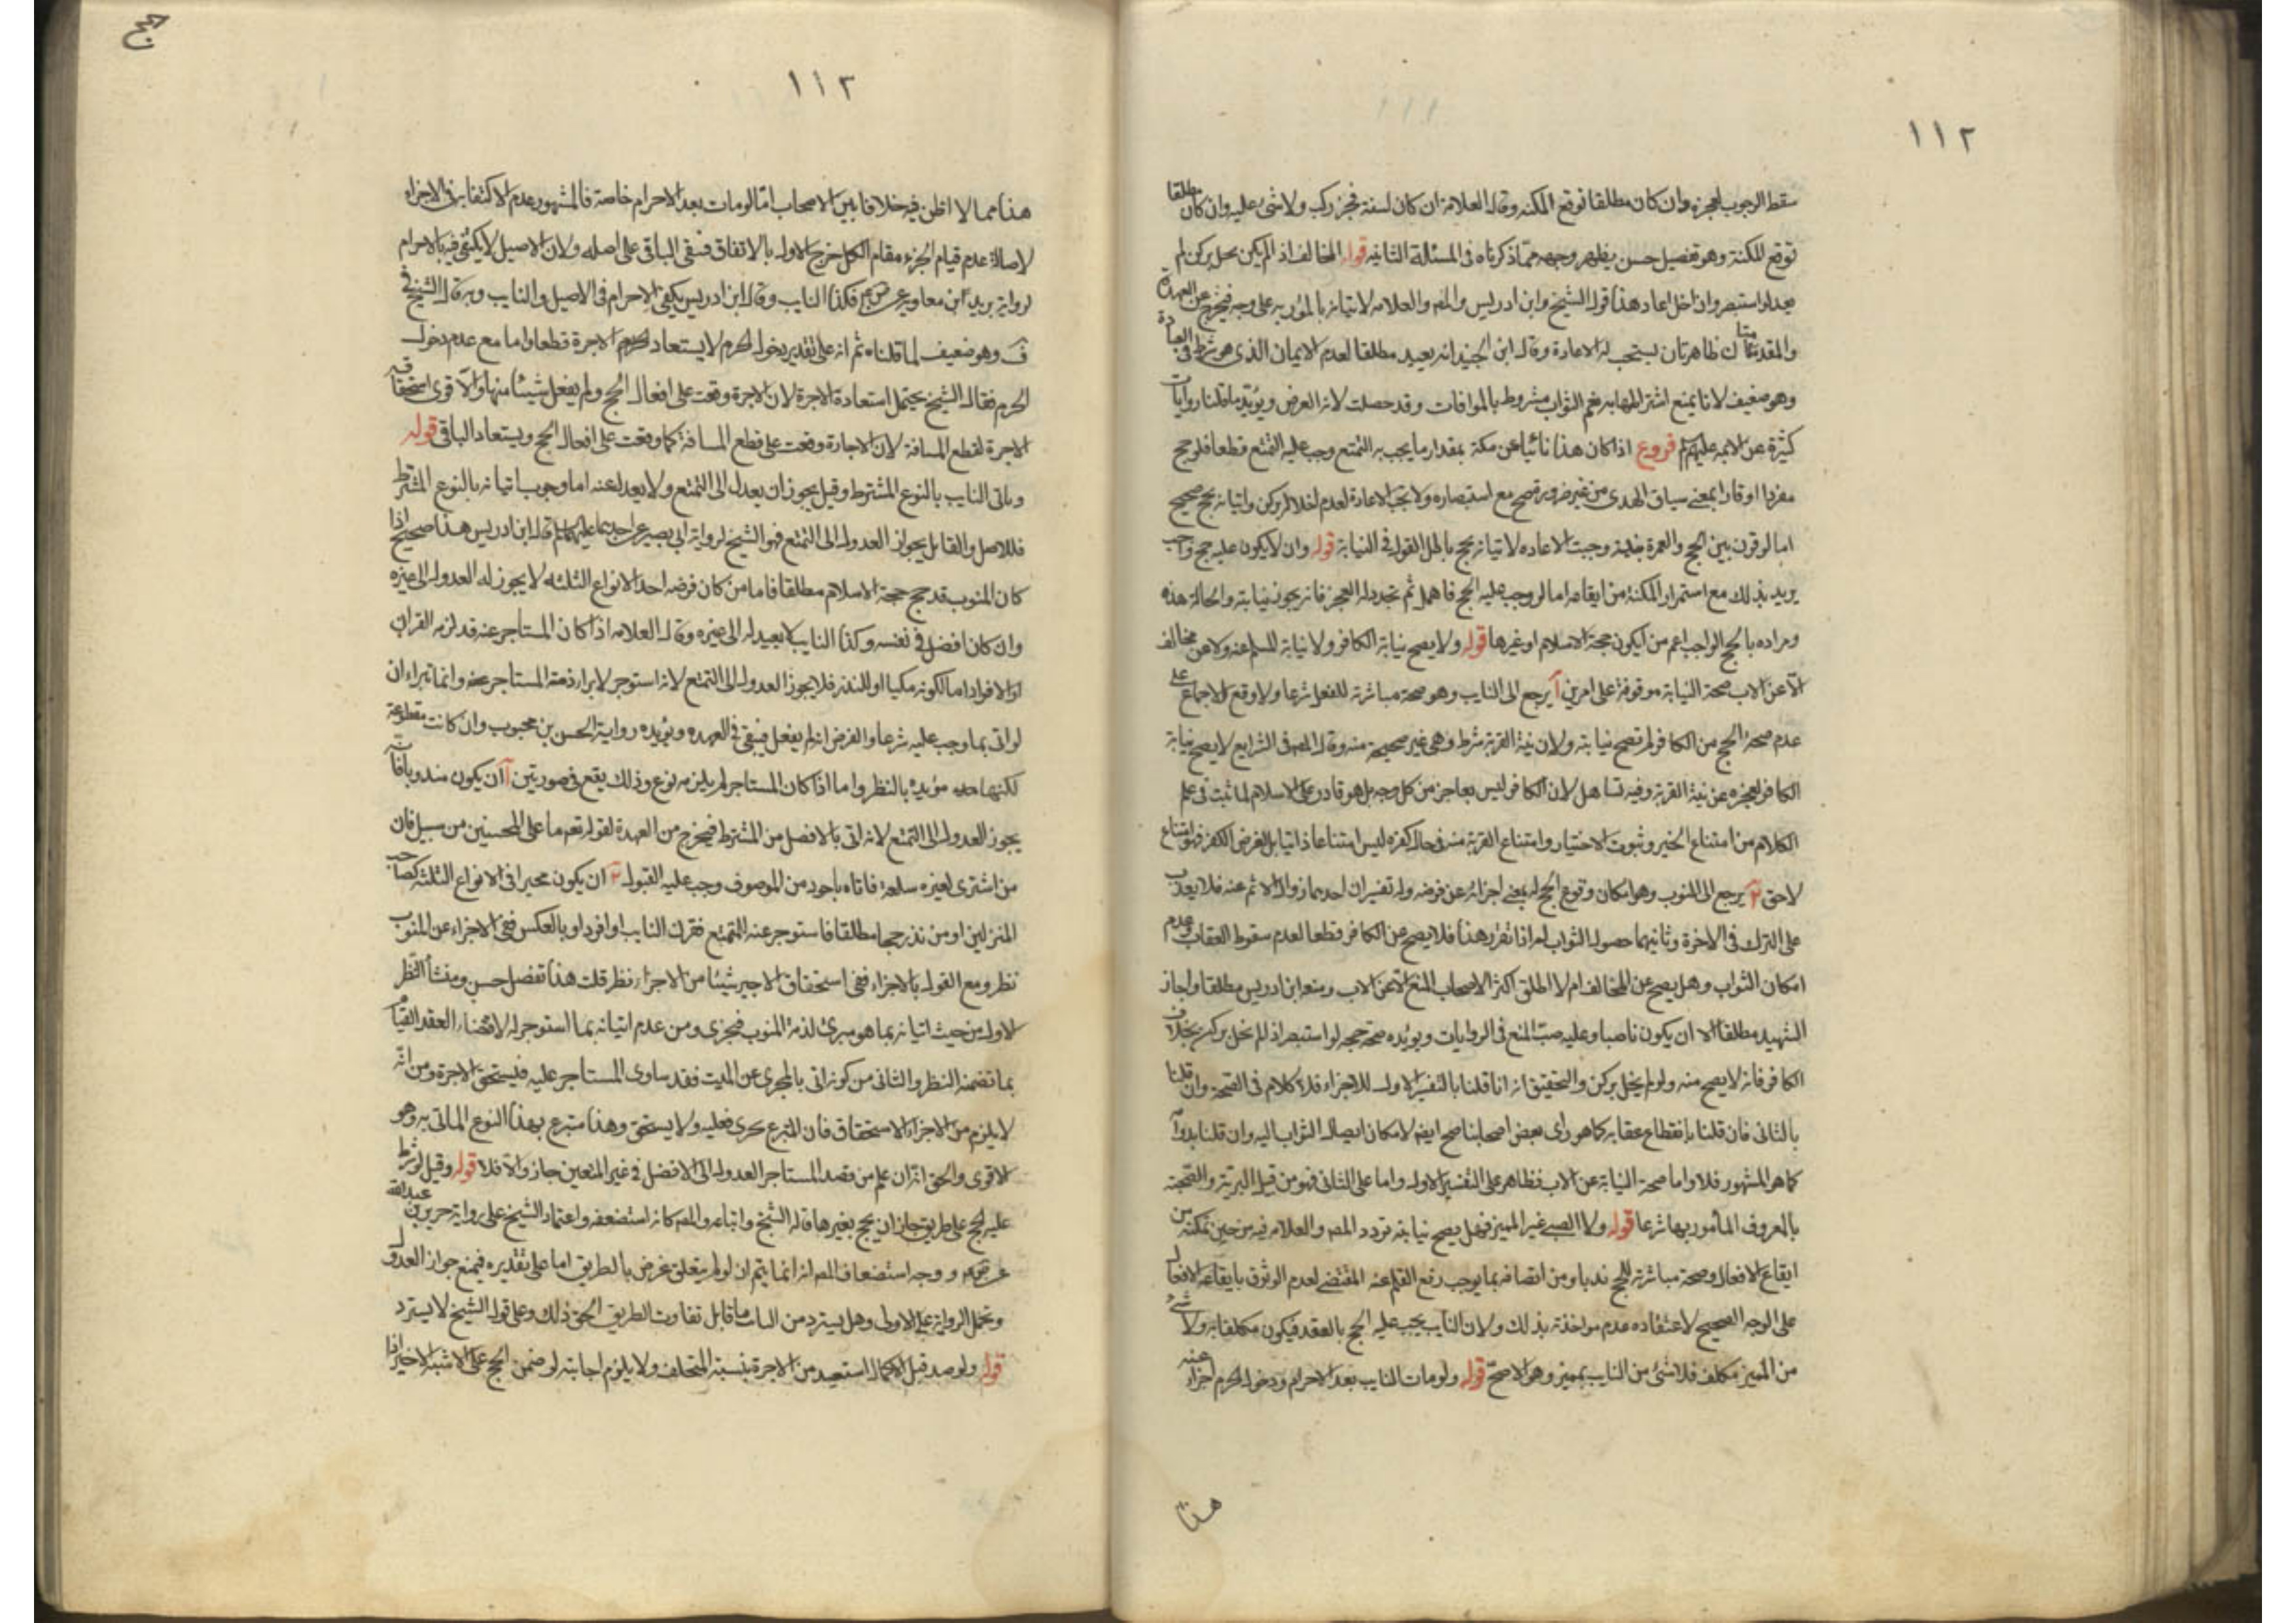 ١١٢
سقط الوجوب لعجزه وان كان مطلقا توقع المكنة وقال العلامه ان كان لسنة فعجز ركب ولا شئ عليه وان كان مطلقا
توقع المكنة وهو تفصيل حسن يظهر وجهه مما ذكرناه فى المسئلة الثانيه قوله المخالف اذا لم يكن يحل بركن لم
يعد لو استبصر وان اخل اعاد هذا قول الشيخ وابن ادريس والمص والعلامه لاتيانه بالمؤربه على وجه فيخرج عن العهدة
والمقدمتان ظاهرتان يستحب له الاعادة وقال ابن الجنيد انه يعيد مطلقا لعدم الايمان الذى هو شرط فى العبادة
وهو ضعيف لانا نمنع اشتراطها به نعم الثواب مشروط بالموافات وقد حصلت لانه الفرض ويؤيد ما قلنا روايات
كثيرة عن الائمه عليهم فروع اذا كان هذا نائيا عن مكة بمقدار ما يجب به التمتع وجب عليه التمتع قطعا فلو حج
مفردا او قارنا بمعنى سياق الهدى من غير ضرورة صح مع استبصاره ولا تجب الاعادة لعدم اخلاله بركن واتيانه بحج صحيح
اما لو قرن بين الحج والعمرة بنية وجبت الاعاده لاتيانه بحج باطل القول فى النيابة قوله وان لا يكون عليه حج واجب
يريد بذلك مع استمرار المكنة من ايقاعه اما لو وجب عليه الحج فاهمل ثم تجدد له العجز فانه يجوز نيابته والحالة هذه
ومراده بالحج الواجب اعم من ان يكون حجة الاسلام او غيرها قوله ولا يصح نيابة الكافر ولا نيابة المسلم عنه ولا عن مخالف
الا عن الاب صحة النيابة موقوفة على امرين آ يرجع الى النايب وهو صحة مباشرته للفعل شرعا ولا وقع الاجماع على
عدم صحة الحج من الكافر لم تصح نيابته ولان نية القربة شرط وهى غير صحيحة منه وقال المص فى الشرايع لا يصح نيابة
الكافر لعجزه عن نية القربة وفيه تساهل لان الكافر ليس بعاجز من كل وجه بل هو قادر على الاسلام لما ثبت فى علم
الكلام من امتناع الجبر وثبوت الاختيار وامتناع القربة منه فى حال كفره ليس امتناعا ذاتيا بل لفرض الكفر فهو امتناع
لاحق ب يرجع الى المنوب وهو امكان وقوع الحج له بمعنى اجزائه عن فرضه وله تفسيران احدهما زوال الاثم عنه فلا يعذب
على الترك فى الاخرة وثانيهما حصول الثواب له اذا تقرر هذا فلا يصح عن الكافر قطعا لعدم سقوط العقاب وعدم
امكان الثواب وهل يصح عن المخالف ام لا اطلق اكثر الاصحاب المنع الا عن الاب ومنع ابن ادريس مطلقا واجاز
الشهيد مطلقا الا ان يكون ناصبا وعليه صب المنع فى الروايات ويؤيده صحة حجه لو استبصر اذا لم يخل بركن بخلاف
الكافر فانه لا يصح منه ولو لم يخل بركن والتحقيق انه ان قلنا بالتفسير الاول للاجزاء فلا كلام فى الصحة وان قلنا
بالثانى فان قلنا بانقطاع عقابه كما هو رأى بعض اصحابنا صح ايضا لامكان ايصال الثواب اليه وان قلنا بدوامه
كما هو المشهور فلا واما صحة النيابة عن الاب فظاهر على التفسير الاول واما على الثانى فهو من قبيل البر به والصحبة
بالمعروف المأمور بها شرعا قوله ولا الصبى غير المميز فهل يصح نيابته تردد المص والعلامه فيه من حيث تمكنه من
ايقاع الافعال وصحة مباشرته للحج ندبا ومن اتصافه بما يوجب رفع القلم عنه المقتضى لعدم الوثوق بايقاعه الافعال
على الوجه الصحيح لاعتقاده عدم مؤاخذته بذلك ولان النايب يجب عليه الحج بالعقد فيكون مكلفا به ولا شئ
من المميز مكلف فلا شئ من النايب بمميز وهو الاصح قوله ولو مات النايب بعد الاحرام ودخول الحرم اجزأ عنه
هذا
حج
١١٢
هذا مما لا اظن فيه خلافا بين الاصحاب اما لو مات بعد الاحرام خاصة فالمشهور عدم الاكتفا به فى الاجزاء
لاصالة عدم قيام الجزء مقام الكل خرج الاول بالاتفاق فبقى الباقى على اصله ولان الاصيل لا يكتفى فيه بالاحرام
لرواية بريد ابن معاويه عن فكذا النايب وقال ابن ادريس يكفى الاحرام فى الاصيل والنايب وبه قال الشيخ فى
ف وهو ضعيف لما قلناه ثم انه على تقدير دخول الحرم لا يستعاد الاجرة قطعا واما مع عدم دخول
الحرم فقال الشيخ يحتمل استعادة الاجرة لان الاجرة وقعت على افعال الحج ولم يفعل شيئا منها والاقوى استحقاقه
الاجرة لقطع المسافة لان الاجارة وقعت على قطع المسافة كما وقعت على افعال الحج ويستعاد الباقى قوله
وياتى النايب بالنوع المشترط وقيل يجوز ان يعدل الى التمتع ولا يعدل عنه اما وجوب اتيانه بالنوع المشترط
فللاصل والقايل بجواز العدول الى التمتع فهو الشيخ لرواية ابى بصير عن احدهما عليهما قال ابن ادريس هذا صحيح اذا
كان المنوب قد حج حجة الاسلام مطلقا فاما من كان فرضه احد الانواع الثلثه لا يجوز له العدول الى غيره
وان كان افضل فى نفسه وكذا النايب لا يعيد له الى غيره وقال العلامه اذا كان المستاجر عنه قد لزمه القران
او الافراد اما لكونه مكيا او للنذر فلا يجوز العدول الى التمتع لانه استوجر لابراء ذمة المستاجر عنه وانما تبراء ان
لو اتى بما وجب عليه شرعا والفرض انه لم يفعل فيبقى فى العهده ويؤيده رواية الحسن بن محبوب وان كانت مقطوعة
لكنها مؤيدة بالنظر واما اذا كان المستاجر لم يلزمه نوع وذلك يقع فى صورتين آ ان يكون مندوبا فانه
يجوز العدول الى التمتع لانه اتى بالافضل من المشترط فيخرج من العهدة لقوله تعم ما على المحسنين من سبيل فان
من اشترى لغيره سلعة فاتاه باجود من الموصوف وجب عليه القبول ب ان يكون مخيرا فى الانواع الثلثه كصاحب
المنزلين او من نذر حجا مطلقا فاستوجر عنه للتمتع فقرن النايب او افرد او بالعكس ففى الاجزاء عن المنوب
نظر ومع القول بالاجزاء ففى استحقاق الاجير شيئا من الاجر نظر قلت هذا تفصيل حسن ومنشأ النظر
الاول من حيث اتيانه بما هو مبرئ لذمة المنوب فيجزى ومن عدم اتيانه بما استوجر له لاقتضاء العقد القيام
بما تضمنه النظر والثانى من كونه اتى بالمجزى عن الميت فقد ساوى المستاجر عليه فيستحق الاجرة ومن انه
لا يلزم من الاجزاء الاستحقاق فان المتبرع يجزى فعليه ولا يستحق وهذا متبرع بهذا النوع الماتى به وهو
الاقوى والحق انه ان علم من قصد المستاجر العدول الى الافضل فى غير المتعين جاز والا فلا قوله وقيل لو شرط
عليه الحج على طريق جاز ان يحج بغيرها قاله الشيخ واتباعه والمص كانه استضعفه واعتماد الشيخ على رواية حريز بن عبدالله
عن ووجه استضعاف المص انه انما يتم ان لو لم يتعلق غرض بالطريق اما على تقديره فيمنع جواز العدول
وتحمل الرواية على الاولى وهل يسترد من ما قابل تفاوت الطريق الحق ذلك وعلى قول الشيخ لا يسترد
قوله ولو صد قبل الاكمال استعيد من الاجرة بنسبة المتخلف ولا يلزم اجابته لو ضمن الحج على الاشبه الاجير اذا